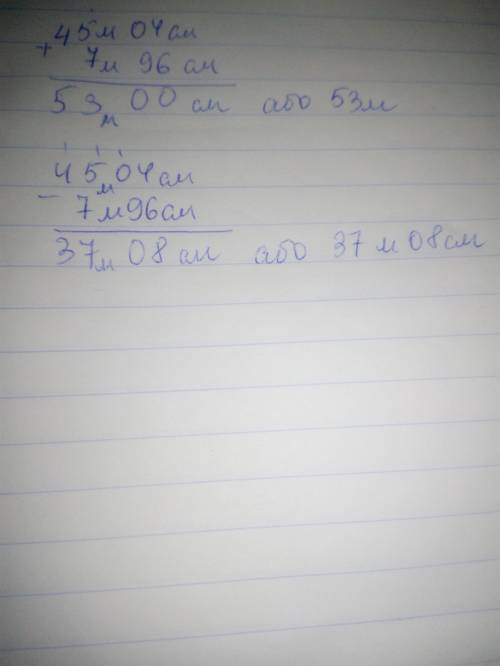 45м 04см
+ 7м 96см
53м 00см або 53м
45м04см
- 7м96см
37м 08см або 37м 08см